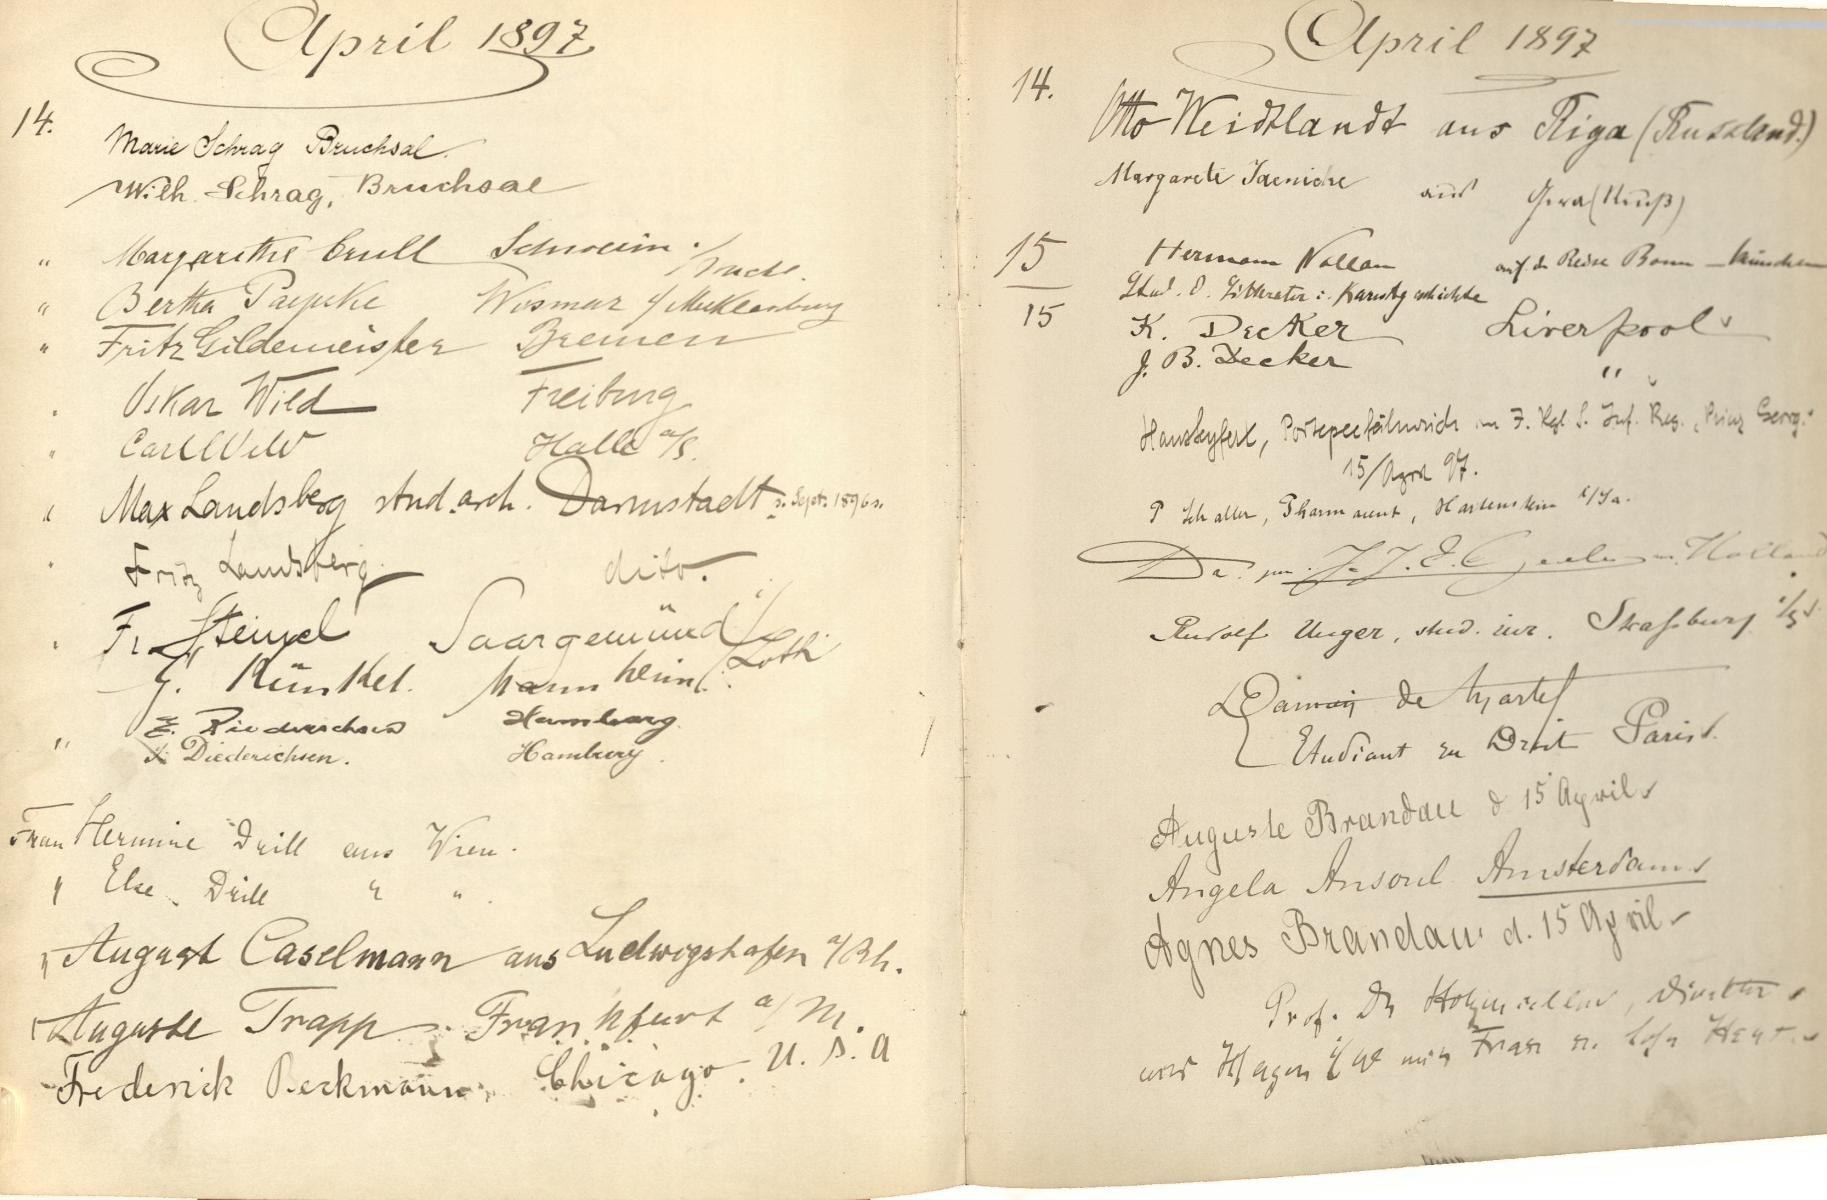 April 1897
14.
Marie Schrag Bruchsal.
Wilh. Schrag, Bruchsal
" Margarethe Crull Schwerin i/
" Bertha Paepcke Wismar i/Mecklenburg
" Fritz Gildemeister Bremen
" Oskar Wild Freiburg
" Carl Wild Halle a/S.
" Max Landsberg stud. arch. Darmstadt s. Sept. 1896
" Fritz Landsberg. dito.
" Fr. Stengel Saargemünd i/Loth
G. Künkel. Mannheim.
E. Hamburg.
" Diederichsen. Hamburg.
Frau Hermine Drill aus Wien.
" Else Drill " ".
" August Caselmann aus Ludwigshafen a/Rh.
Auguste Trapp. Frankfurt a/M.
Frederick Beckmann. Chicago. U. S. A
April 1897
14.
Otto Weidtlandt aus Riga (Russland.)
Margarete Jaenicke aus Gera (Reuß)
15 Hermann Nollau auf d. Reise Bonn – München
Stud. d. Litteratur u. Kunstgeschichte
15 K. Decker Liverpool
J. B. Decker "
Hans Seyfert, Portepeefähnrich im 7. Kgl. S. Inf. Reg. "Prinz Georg."
15/April 97.
P Schaller, Pharmaceut, Hartenstein i/Sa.
J. J. E. Holland
Rudolf Unger, stud. iur. Strassburg i/E
de
Etudiant en Droit Paris.
Auguste Brandau d 15 April
Angela Amsterdam
Agnes Brandau. d. 15 April
Prof. Dr Holzmüller, Direktor
aus Hagen i/W mit Frau u.